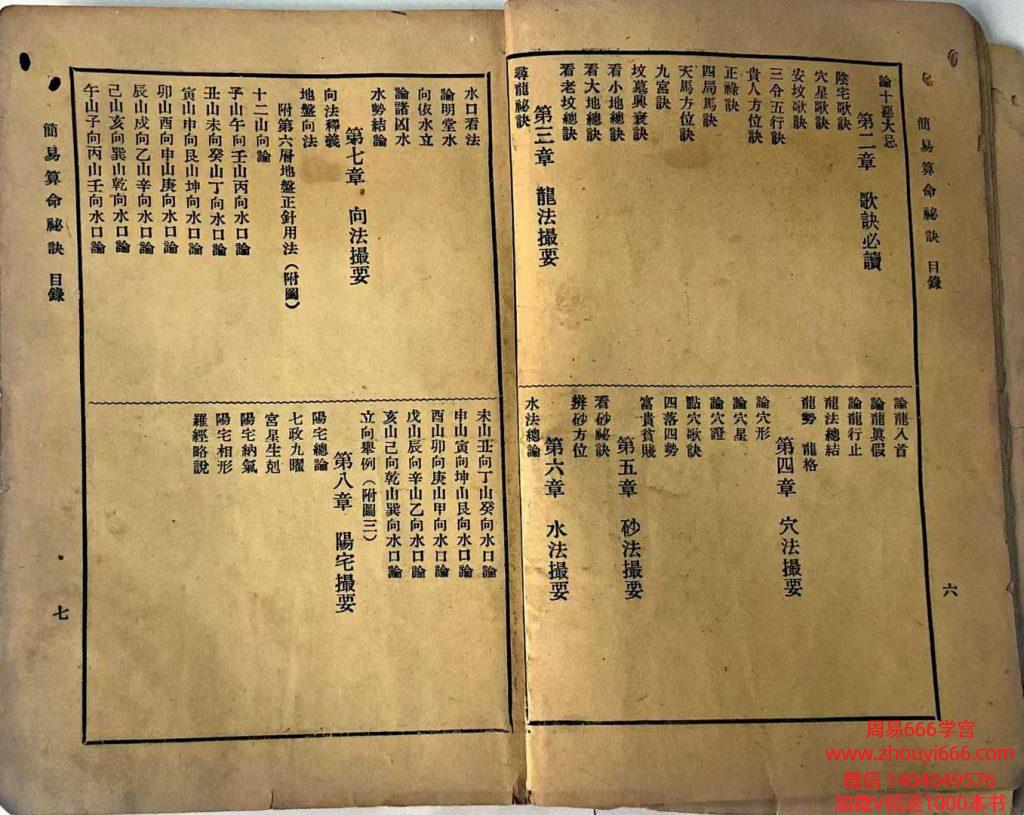 簡易算命祕訣 目錄
六
論十惡大忌
第二章 歌訣必讀
陰宅歌訣
穴星歌訣
安坟歌訣
三合五行訣
貴人方位訣
正祿訣
四局馬訣
天馬方位訣
九宮訣
坟墓興衰訣
看小地總訣
看大地總訣
看老坟總訣
第三章 龍法撮要
尋龍祕訣
論龍入首
論龍眞假
論龍行止
龍法總結
龍勢 龍格
第四章 穴法撮要
論穴形
論穴星
論穴證
點穴歌訣
四落四勢
富貴貧賤
第五章 砂法撮要
看砂祕訣
辨砂方位
第六章 水法撮要
水法總論
水口看法
論明堂水
向依水立
論諸凶水
水勢結論
第七章 向法撮要
向法釋義
地盤向法
附第六層地盤正針用法（附圖）
十二山向論
子山午向壬山丙向水口論
丑山未向癸山丁向水口論
寅山申向艮山坤向水口論
卯山酉向甲山庚向水口論
辰山戌向乙山辛向水口論
己山亥向巽山乾向水口論
午山子向丙山壬向水口論
未山丑向丁山癸向水口論
申山寅向坤山艮向水口論
酉山卯向庚山甲向水口論
戊山辰向辛山乙向水口論
亥山己向乾山巽向水口論
立向舉例（附圖三）
第八章 陽宅撮要
陽宅總論
七政九曜
宮星生剋
陽宅納氣
陽宅相形
羅經略說
簡易算命祕訣 目錄
七
周易666学宫
www.zhouyi666.com
微信 1404049576
加微V信送1000本书